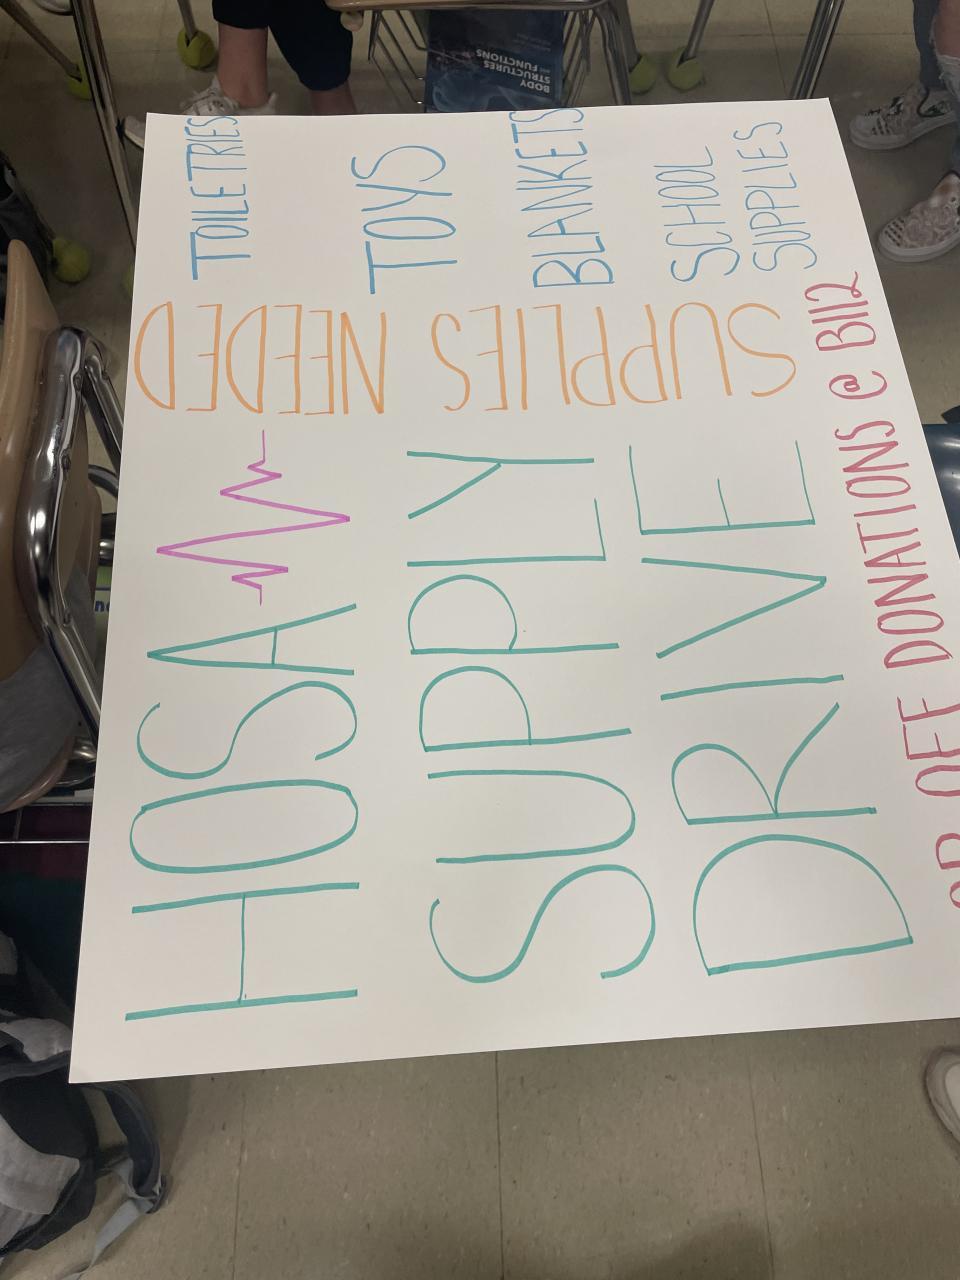 HOSA
SUPPLY
DRIVE
SUPPLIES NEEDED
TOILETRIES
TOYS
BLANKETS
SCHOOL
SUPPLIES
OFF DONATIONS @ B112
BODY
STRUCTURES
AND FUNCTIONS